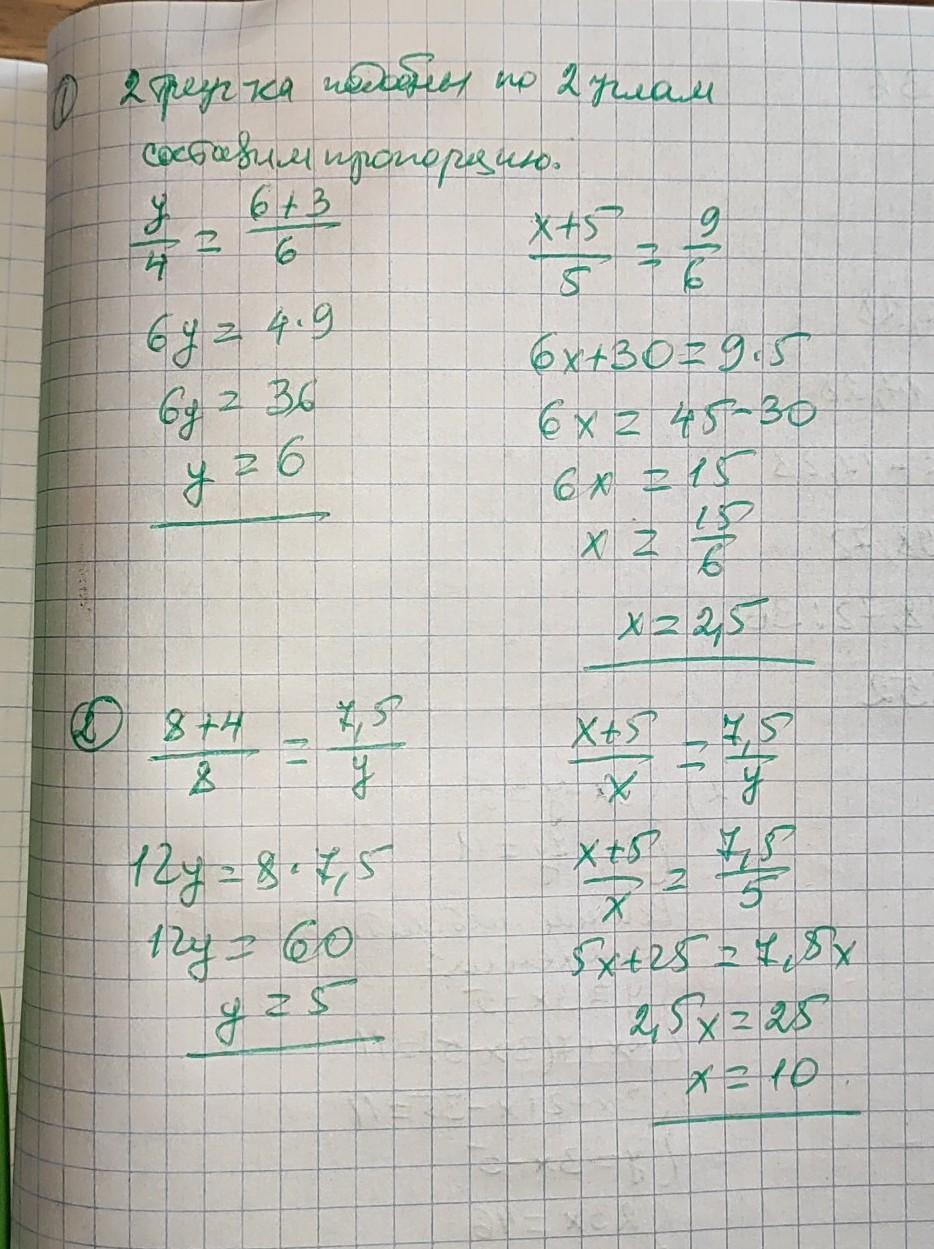 ① 2 треуг-ка подобны по 2 углам
составим пропорцию.
y/4 = (6+3)/6
6y = 4·9
6y = 36
y = 6
(x+5)/5 = 9/6
6x+30=9·5
6x = 45-30
6x = 15
x = 15/6
x = 2,5
② (8+4)/8 = 7,5/y
12y = 8·7,5
12y = 60
y = 5
(x+5)/x = 7,5/y
(x+5)/x = 7,5/5
5x+25 = 7,5x
2,5x = 25
x = 10